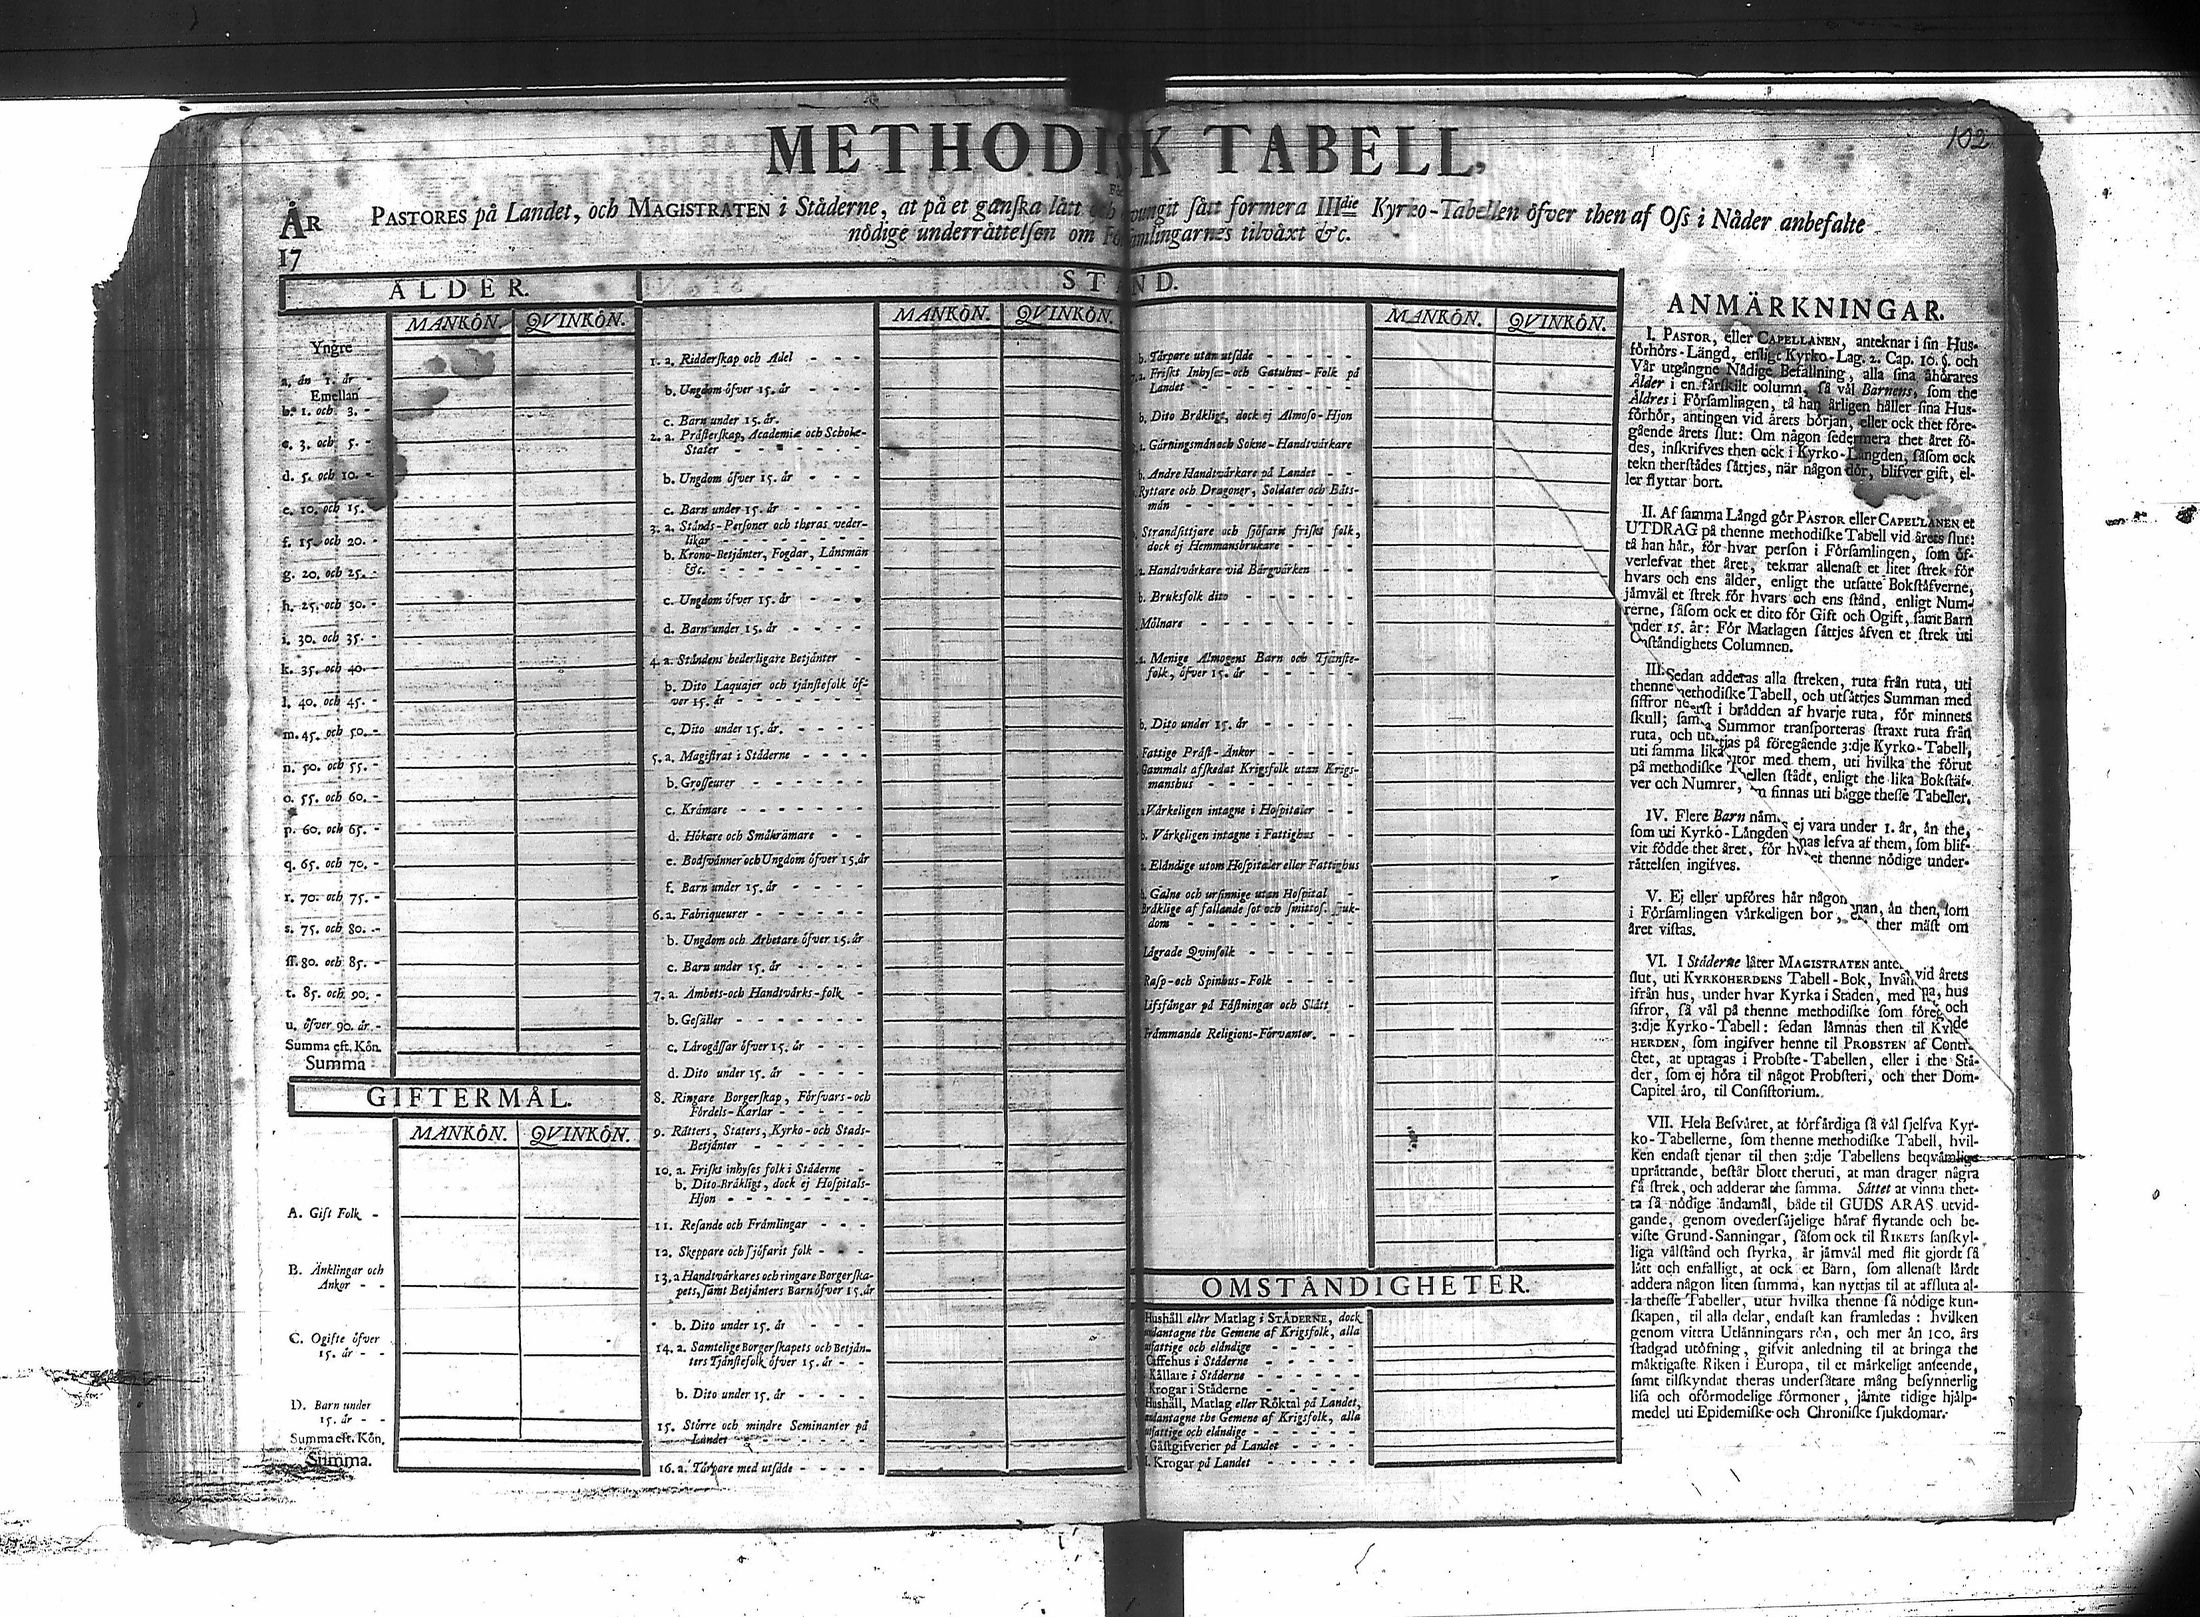 102
METHODISK TABELL,
För
ÅR PASTORES på Landet, och MAGISTRATEN i Städerne, at på et ganska lätt och otvungit sätt formera IIIdie Kyrko-Tabellen öfver then af Oss i Nåder anbefalte
nödige underrättelsen om Församlingarnes tilväxt &c.
17
ÅLDER.
MANKÖN. QVINKÖN.
Yngre
a. än 1. år -
Emellan
b. 1. och 3. -
c. 3. och 5. -
d. 5. och 10. -
e. 10. och 15.
f. 15. och 20. -
g. 20. och 25. -
h. 25. och 30. -
i. 30. och 35. -
k. 35. och 40. -
l. 40. och 45. -
m. 45. och 50. -
n. 50. och 55. -
o. 55. och 60. -
p. 60. och 65. -
q. 65. och 70. -
r. 70. och 75. -
s. 75. och 80. -
ss. 80. och 85. -
t. 85. och 90. -
u. öfver 90. år. -
Summa eft. Kön.
Summa
GIFTERMÅL.
MANKÖN. QVINKÖN.
A. Gift Folk -
B. Änklingar och
Änkor - -
C. Ogifte öfver
15. år - -
D. Barn under
15. år - -
Summa eft. Kön.
Summa.
STÅND.
MANKÖN. QVINKÖN.
1. a. Ridderskap och Adel - - -
b. Ungdom öfver 15. år - - -
c. Barn under 15. år.
2. a. Prästerskap, Academiæ och Schole-
Stater - - - - - -
b. Ungdom öfver 15. år - - -
c. Barn under 15. år - - - -
3. a. Stånds-Personer och theras veder-
likar - - - - - - -
b. Krono-Betjänter, Fogdar, Länsmän
&c. - - - - - - -
c. Ungdom öfver 15. år - - -
d. Barn under 15. år - - - -
4. a. Ståndens hederligare Betjänter -
b. Dito Laquajer och tjänstefolk öf-
ver 15. år - - - - - -
c. Dito under 15. år. - - - -
5. a. Magistrat i Städerne - - - -
b. Grosseurer - - - - - -
c. Krämare - - - - - -
d. Hökare och Småkrämare - -
e. Bodsvänner och Ungdom öfver 15. år
f. Barn under 15. år - - - -
6. a. Fabriqueurer - - - - - -
b. Ungdom och Arbetare öfver 15. år
c. Barn under 15. år - - - -
7. a. Ämbets-och Handtvärks-folk -
b. Gesäller - - - - - - -
c. Lärogåssar öfver 15. år - - -
d. Dito under 15. år - - - -
8. Ringare Borgerskap, Försvars-och
Fördels-Karlar - - - - -
9. Rätters, Staters, Kyrko-och Stads-
Betjänter - - - - - -
10. a. Friskt inhyses folk i Städerne -
b. Dito Bräkligt, dock ej Hospitals-
Hjon - - - - - - -
11. Resande och Främlingar - - -
12. Skeppare och sjöfarit folk - - -
13. a Handtvärkares och ringare Borgerska-
pets, samt Betjänters Barn öfver 15. år
b. Dito under 15. år - - -
14. a. Samtelige Borgerskapets och Betjän-
ters Tjänstefolk öfver 15. år - -
b. Dito under 15. år - - - -
15. Större och mindre Seminanter på
Landet - - - - - -
16. a. Tärpare med utsäde - - - -
MANKÖN. QVINKÖN.
b. Tärpare utan utsäde - - - - -
a. Friskt Inhyses-och Gatuhus-Folk på
Landet - - - - - -
b. Dito Bräkligt, dock ej Almoso-Hjon
Gärningsmän och Sokne-Handtvärkare
b. Andre Handtvärkare på Landet - -
Ryttare och Dragoner, Soldater och Båts-
män - - - - - -
Strandsittjare och sjöfarit friskt folk,
dock ej Hemmansbrukare - - - -
Handtvärkare vid Bärgvärken - -
b. Bruksfolk dito - - - - -
Mölnare - - - - - - -
Menige Almogens Barn och Tjänste-
folk, öfver 15. år - - - - -
b. Dito under 15. år - - - - -
Fattige Präst-Änkor - - - - -
Gammalt afskedat Krigsfolk utan Krigs-
manshus - - - - - - -
Värkeligen intagne i Hospitaler - -
b. Värkeligen intagne i Fattighus - -
Eländige utom Hospitaler eller Fattighus
Galne och ursinnige utan Hospital -
Bräklige af fallande sot och smittos. sjuk-
dom - - - - - - -
Lägrade Qvinfolk - - - - -
Rasp-och Spinhus-Folk - - - -
Lifsfångar på Fästningar och Slått -
Främmande Religions-Förvanter. - -
OMSTÄNDIGHETER.
Hushåll eller Matlag i STÄDERNE, dock
undantagne the Gemene af Krigsfolk, alla
utfattige och eländige - - - - -
Caffehus i Städerne - - - - -
Källare i Städerne - - - - -
Krogar i Städerne - - - - -
Hushåll, Matlag eller Röktal på Landet,
undantagne the Gemene af Krigsfolk, alla
utfattige och eländige - - - - -
Gästgifverier på Landet - - - -
Krogar på Landet - - - - -
ANMÄRKNINGAR.
I. PASTOR, eller CAPELLANEN, anteknar i sin Hus-
förhörs-Längd, enligt Kyrko-Lag. 2. Cap. 10. §. och
Vår utgångne Nådige Befallning, alla sina åhörares
Ålder i en särskilt column, så väl Barnens, som the
Äldres i Församlingen, tå han årligen håller sina Hus-
förhör, antingen vid årets början, eller ock thet före-
gående årets slut: Om någon sedermera thet året fö-
des, inskrifves then ock i Kyrko-Längden, såsom ock
tekn therstädes sättjes, när någon dör, blifver gift, el-
ler flyttar bort.
II. Af samma Längd gör PASTOR eller CAPELLANEN et
UTDRAG på thenne methodiske Tabell vid årets slut:
tå han här, för hvar person i Församlingen, som öf-
verlefvat thet året, teknar allenast et litet strek för
hvars och ens ålder, enligt the utsatte Bokstäfverne,
jämväl et strek för hvars och ens stånd, enligt Num-
rerne, såsom ock et dito för Gift och Ogift, samt Barn
under 15. år: För Matlagen sättjes äfven et strek uti
Omständighets Columnen.
III. Sedan adderas alla streken, ruta från ruta, uti
thenne methodiske Tabell, och utsättjes Summan med
siffror nederst i brädden af hvarje ruta, för minnets
skull; samma Summor transporteras straxt ruta från
ruta, och utsättjas på föregående 3:dje Kyrko-Tabell,
uti samma lika rutor med them, uti hvilka the förut
på methodiske Tabellen städt, enligt the lika Bokstäf-
ver och Numrer, som finnas uti bägge thesse Tabeller.
IV. Flere Barn näm. ej vara under 1. år, än the,
som uti Kyrko-Längden finnas lefva af them, som blif-
vit födde thet året, för hvilket thenne nödige under-
rättelsen ingifves.
V. Ej eller upföres här någon annan, än then, som
i Församlingen värkeligen bor, och ther mäst om
året vistas.
VI. I Städerne låter MAGISTRATEN anteckna vid årets
slut, uti KYRKOHERDENS Tabell-Bok, Invånarena, hus
ifrån hus, under hvar Kyrka i Staden, med streck och
sifror, så väl på thenne methodiske som föregående
3:dje Kyrko-Tabell: sedan lämnas then til KYRKO-
HERDEN, som ingifver henne til PROBSTEN af Contra-
ctet, at uptagas i Probste-Tabellen, eller i the Stä-
der, som ej höra til något Probsteri, och ther Dom-
Capitel äro, til Consistorium.
VII. Hela Besväret, at förfärdiga så väl sjelfva Kyr-
ko-Tabellerne, som thenne methodiske Tabell, hvil-
ken endast tjenar til then 3:dje Tabellens beqvämlige
uprättande, består blott theruti, at man drager några
få strek, och adderar the samma. Sättet at vinna thet-
ta så nödige ändamål, både til GUDS ÄRAS utvid-
gande, genom ovedersäjelige häraf flytande och be-
viste Grund-Sanningar, såsom ock til RIKETS sanskyl-
liga välstånd och styrka, är jämväl med flit gjordt så
lätt och enfalligt, at ock et Barn, som allenast lärdt
addera någon liten summa, kan nyttjas til at afsluta al-
la thesse Tabeller, utur hvilka thenne så nödige kun-
skapen, til alla delar, endast kan framledas: hvilken
genom vittra Utlänningars rön, och mer än 100. års
stadgad utöfning, gifvit anledning til at bringa the
mäktigaste Riken i Europa, til et märkeligt anseende,
samt tilskyndat theras undersåtare mång besynnerlig
lisa och oförmodelige förmoner, jämte tidige hjälp-
medel uti Epidemiske och Chroniske sjukdomar.